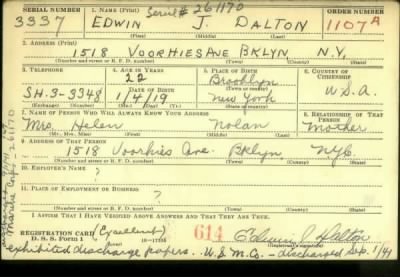 Serial # 261170
SERIAL NUMBER 1. NAME (Print) ORDER NUMBER
3337 EDWIN J. DALTON 1107A
(First) (Middle) (Last)
2. ADDRESS (Print)
1518 VOORHIES AVE BKLYN N.Y.
(Number and street or R. F. D. number) (Town) (County) (State)
3. TELEPHONE 4. AGE IN YEARS 5. PLACE OF BIRTH 6. COUNTRY OF CITIZENSHIP
22 Brooklyn
DATE OF BIRTH (Town or county)
SH.3-3348 1/4/19 New York U.S.A.
(Exchange) (Number) (Mo.) (Day) (Yr.) (State or country)
7. NAME OF PERSON WHO WILL ALWAYS KNOW YOUR ADDRESS 8. RELATIONSHIP OF THAT PERSON
Mrs. Helen Nolan Mother
(Mr., Mrs., Miss) (First) (Middle) (Last)
9. ADDRESS OF THAT PERSON
1518 Voorhies Ave. Bklyn NYC
(Number and street or R. F. D. number) (Town) (County) (State)
10. EMPLOYER'S NAME
?
11. PLACE OF EMPLOYMENT OR BUSINESS
?
(Number and street or R. F. D. number) (Town) (County) (State)
I AFFIRM THAT I HAVE VERIFIED ABOVE ANSWERS AND THAT THEY ARE TRUE.
REGISTRATION CARD
D. S. S. Form 1 16—17105 614 Edwin J Dalton
(Registrant's signature)
exhibited discharge papers. U.S.M.C. - discharged Sep. 1/41
261170